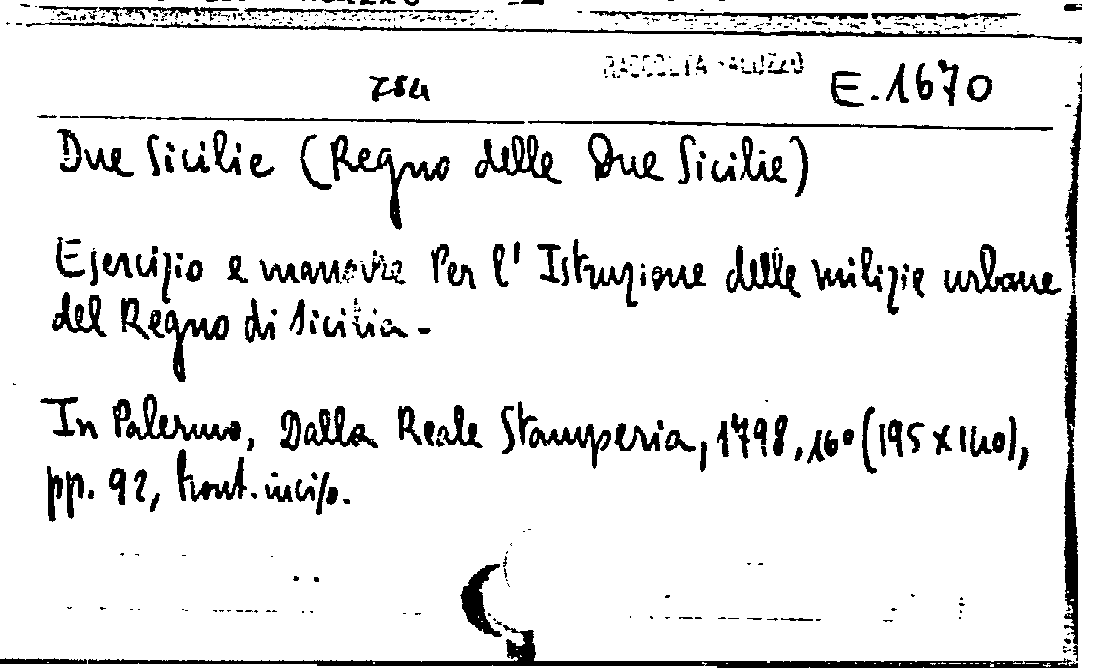 754 RACCOLTA SALUZZO E.1670
Due Sicilie (Regno delle Due Sicilie)
Esercizio e manovre Per l' Istruzione delle milizie urbane
del Regno di Sicilia -
In Palermo, Dalla Reale Stamperia, 1798, 16° (195 x 140),
pp. 92, front. inciso.